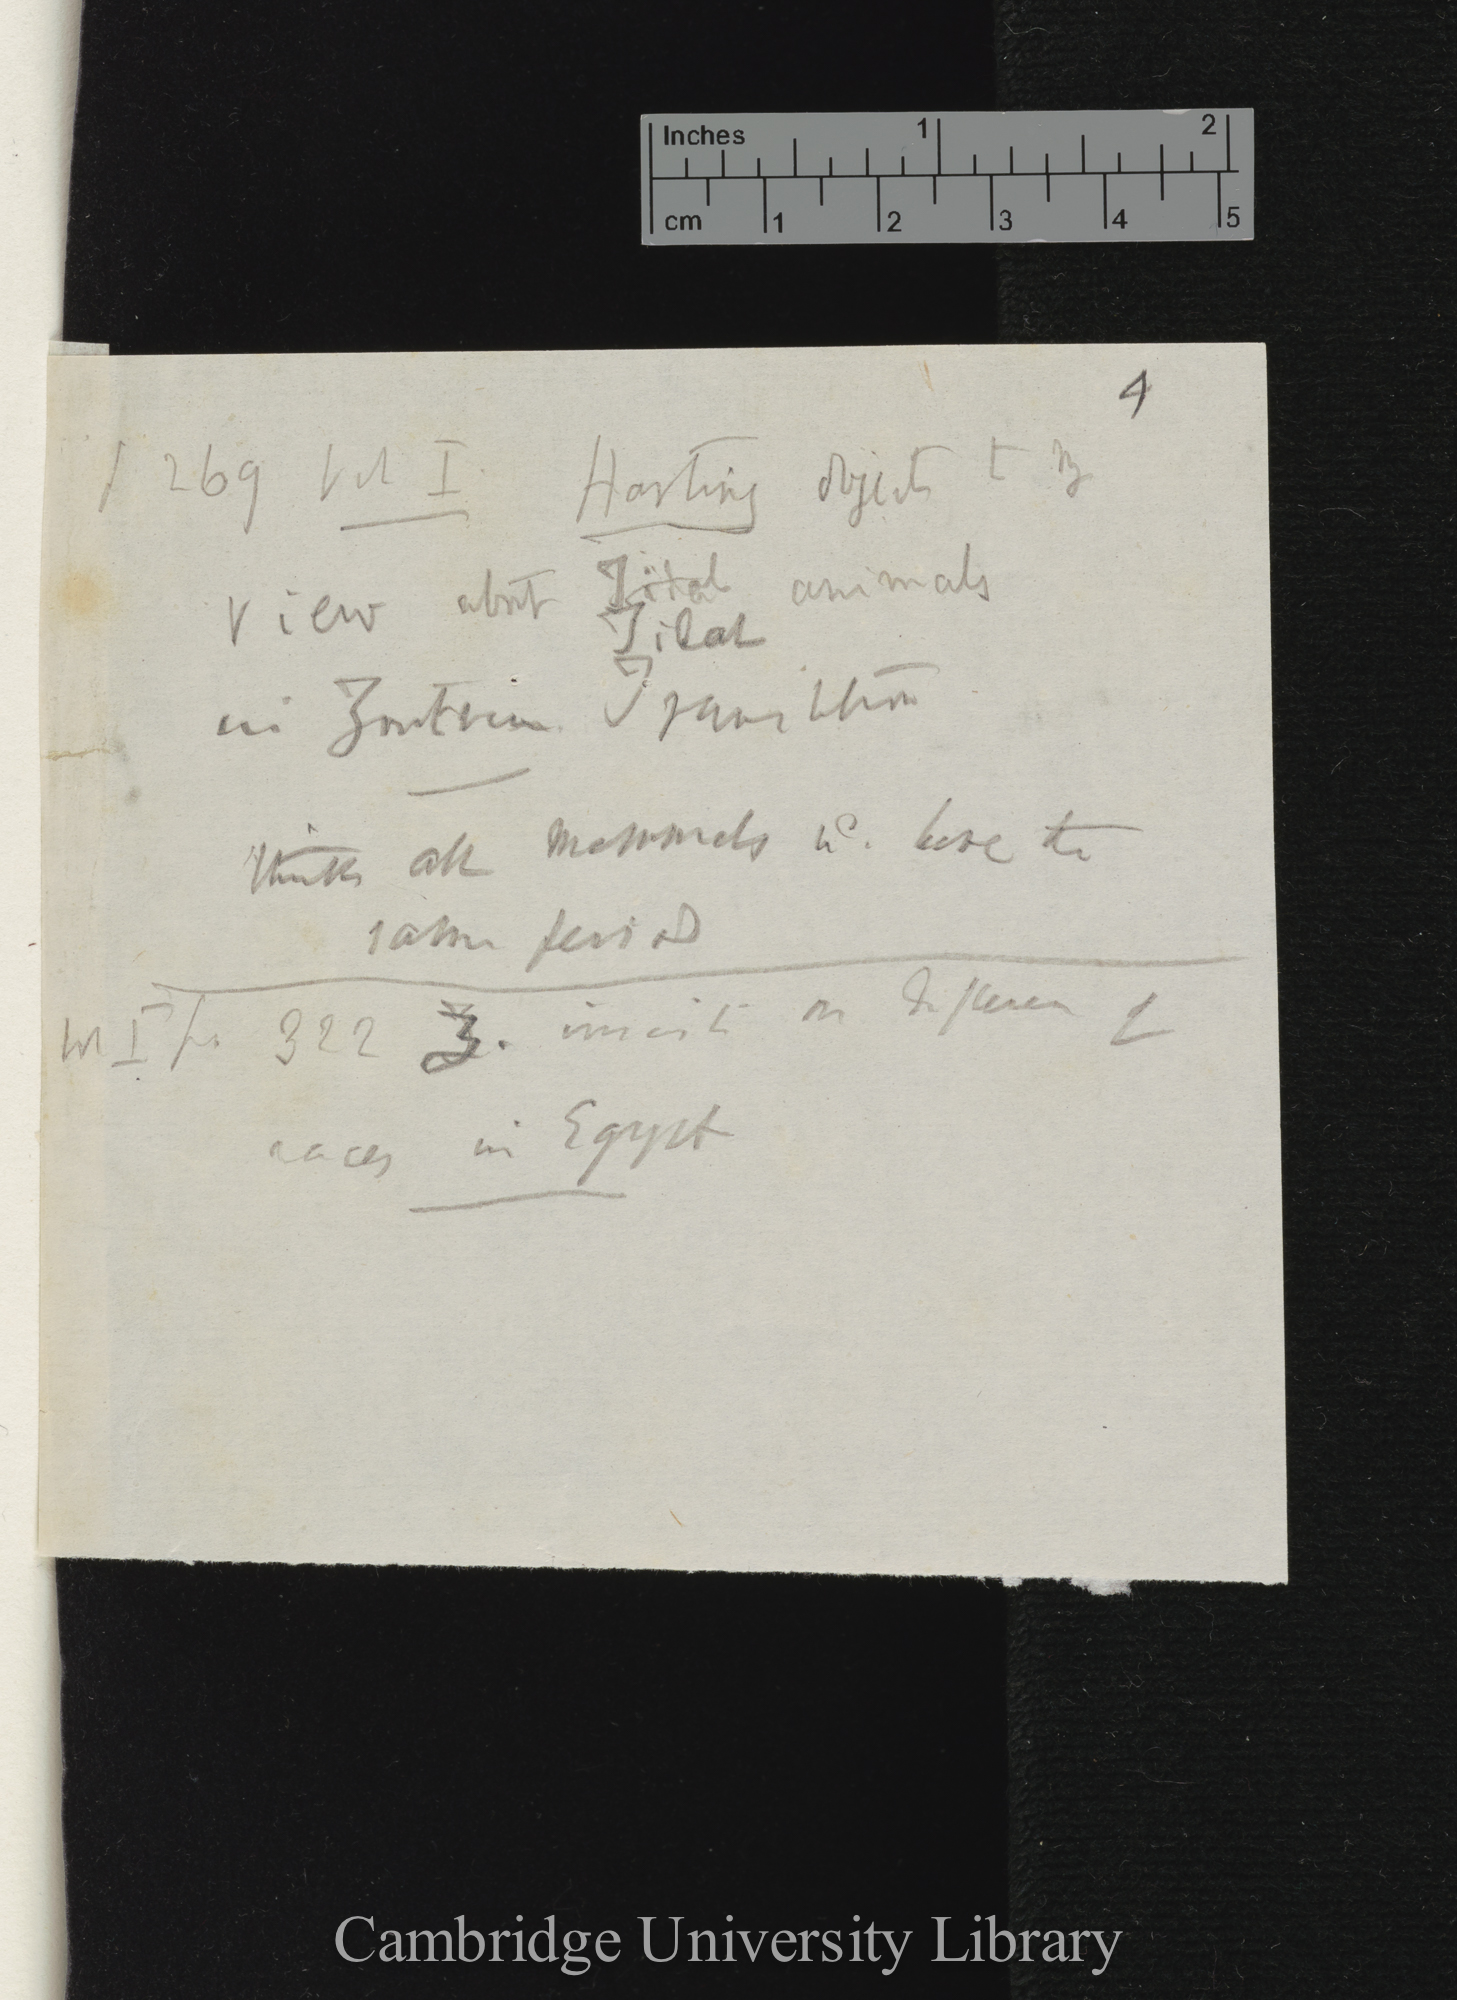 Inches 1 2
cm 1 2 3 4 5
4
p 269 Vol I. Harting objects to my
view about Tidal animals
Tidal
in
thinks all mammals wd. have the
same period
vol I p. 322 insists on difference of
races in Egypt
Cambridge University Library